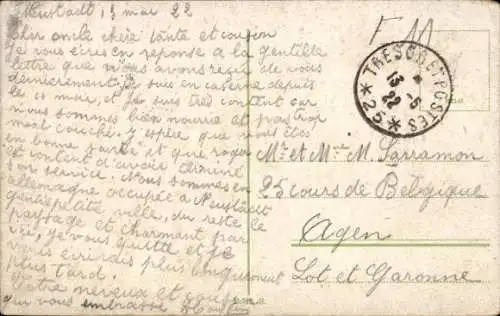 Neustadt 13 mai 22
Cher oncle chère tante et cousin
Je vous écris en reponse a la gentille
lettre que nous avons reçu de vous
dernièrement. Je suis en caserne depuis
le 10 mai, et je suis tres content car
nous sommes bien nourris et pas trop
mal couché. J'espère que vous êtes
en bonne santé et que roger
est content d'avoir terminé
son service. Nous sommes en
allemagne occupée a Neustadt
gentille ville, du reste le
paysage et charmant par
ici, je vous quitte et je
vous écrirais plus longuement
plus tard.
Votre neveux et cousin
qui vous embrasse
F M
TRESOR ET POSTES
13 - 5
22
* 25 *
Mr et Mme M. Sarramon
25 cours de Belgique
Agen
Lot et Garonne